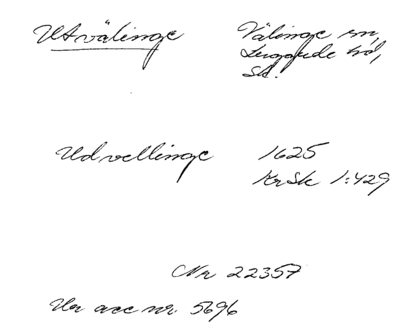 Utvälinge Välinge sn,
Luggude hd,
Sk.
Udvellinge 1625
KrSk 1:429
Nr 22357
Ur acc nr. 5696